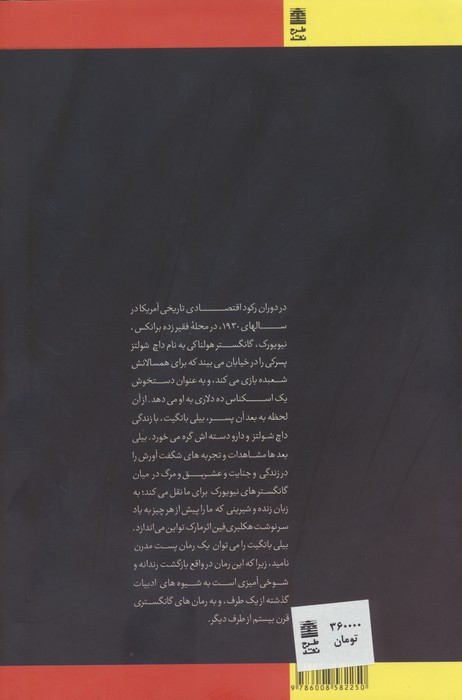 طرح
نقد
در دوران رکود اقتصادی تاریخی آمریکا در
سالهای ۱۹۳۰، در محلهٔ فقیرزده برانکس،
نیویورک، گانگستر هولناکی به نام داچ شولتز
پسرکی را در خیابان می بیند که برای همسالانش
شعبده بازی می کند، و به عنوان دستخوش
یک اسکناس ده دلاری به او می دهد. از آن
لحظه به بعد آن پسر، بیلی باتگیت، با زندگی
داچ شولتز و دارو دسته اش گره می خورد. بیلی
بعدها مشاهدات و تجربه های شگفت آورش را
در زندگی و جنایت و عشق و مرگ در میان
گانگسترهای نیویورک برای ما نقل می کند؛ به
زبان زنده و شیرینی که ما را پیش از هر چیز به یاد
سرنوشت هکلبری فین اثر مارک تواین می اندازد.
بیلی باتگیت را می توان یک رمان پست مدرن
نامید، زیرا که این رمان در واقع بازگشت رندانه و
شوخی آمیزی است به شیوه های ادبیات
گذشته از یک طرف، و به رمان های گانگستری
قرن بیستم از طرف دیگر.
۳۶۰۰۰۰
تومان
طرح
نقد
9786008582250